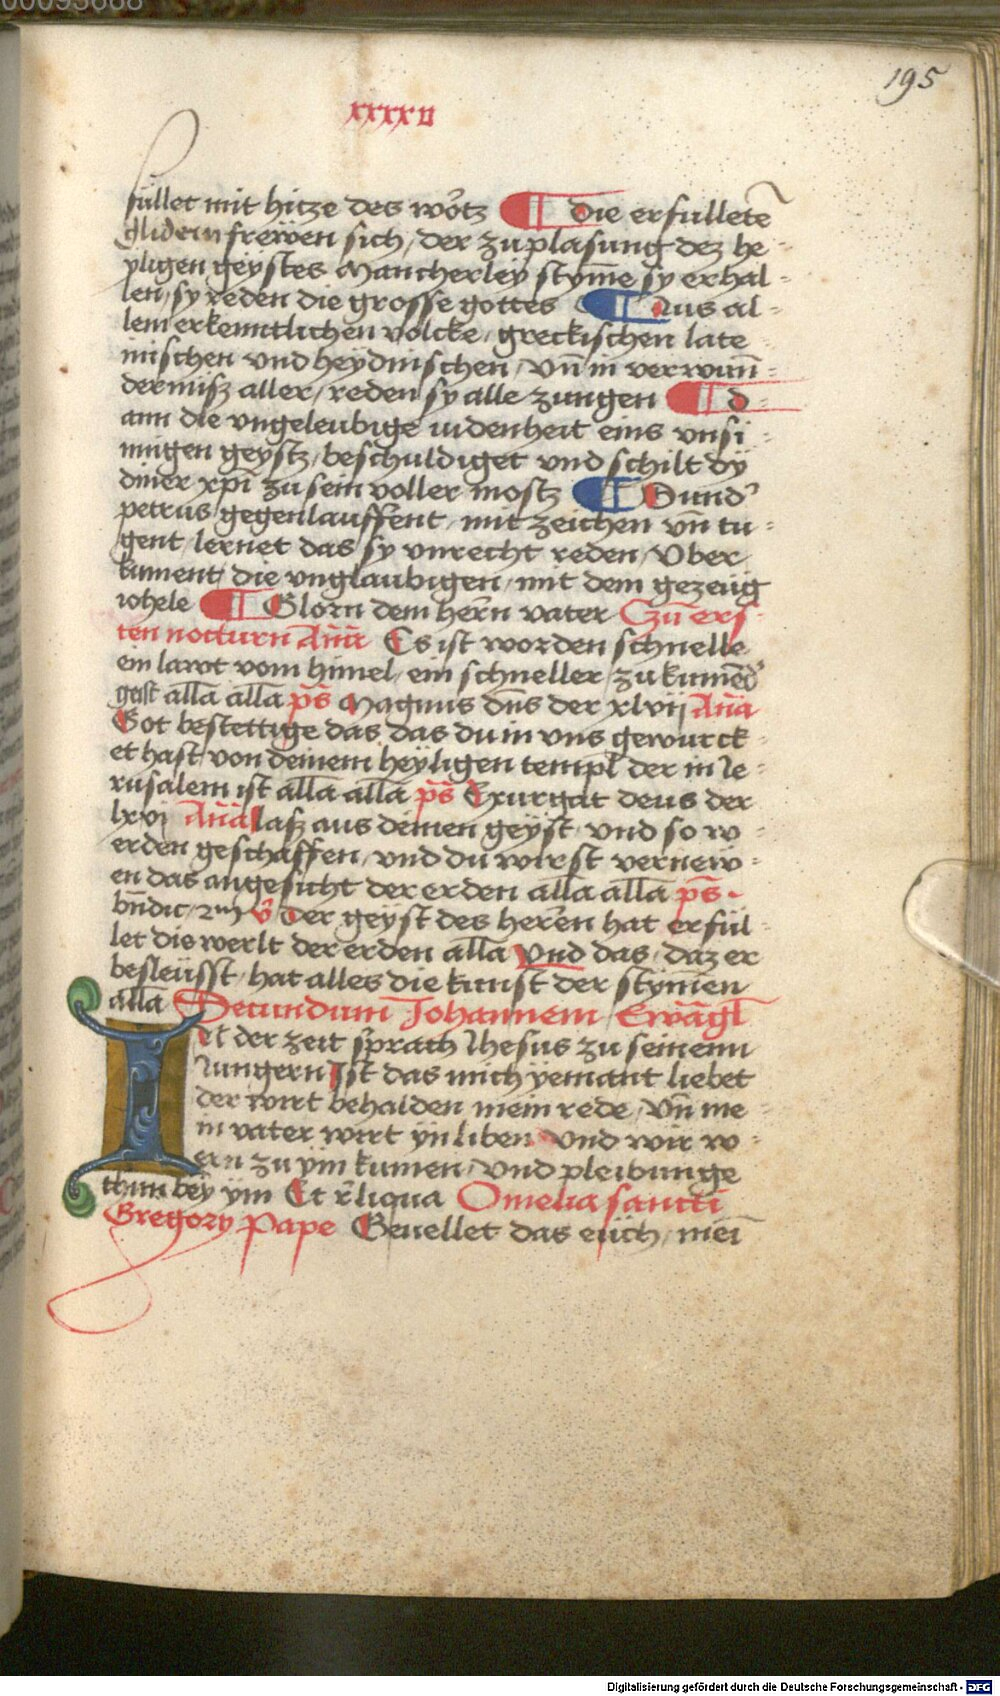 195
xxxxv
füllet mit hitze des wo᷑tz ¶ die erfulletē
glidern freẅen sich, der zuplasung dez he-
yligen geystes Mancherleÿ styme sy erhal-
len, sy reden die grosse gottes ¶ Aus al-
lem erkenntlichen volcke, greckischen late-
inischen und heÿdnischen, vn̄ in verwun̄-
derniß aller, reden sy alle zungen ¶ d-
ann die vngeleubige iudenheit eins vnsi-
nnigen geystz, beschuldiget vnd schilt dÿ
diner xp̄i zu sein voller mostz ¶ Sund᷑
petrus gegenlauffent, mit zeichen vn̄ tu-
gent, lernet das sy vnrecht reden, Vber
kument die vnglaubigen, mit dem gezeüg
iohele ¶ Glorn dem hern vater Czu᷑ ers-
ten nocturn An̄a Es ist worden schnelle
ein lawt vom himel, ein schneller zukumēd᷑
geist all̄a all̄a ps̄ Magnus dn̄s der xlvij An̄a
Got bestettige das das du in vns gewurck-
et hast von deinem heÿligen templ der in Je-
rusalem ist all̄a all̄a ps̄ Exurgat deus der
lxvi An̄a laß aus deinen geÿst, vnd so w-
erden geschaffen, vnd du wirst vernew-
en das angesicht der erden all̄a all̄a ps̄.
bn̄dic, 2m̄ v̄ Der geÿst des heren hat erfül-
let die werlt der erden all̄a Vnd das, daz er
besleüsst, hat alles die kunst der stymen
all̄a Secundum Johannem Ewāgl̄
IN der zeit sprach Jhesus zu seinenn
Jungern Ist das mich ÿemant liebet
der wirt behalden mein rede, Vn̄ me-
in vater wirt ÿn liben Vnd wir w-
ern zu ÿm kumen, Vnd pleibunge
thun beÿ ÿm Et r̄liqua Omelia sancti
Gregory Pape Geuellet das eüch, mei᷑
Digitalisierung gefördert durch die Deutsche Forschungsgemeinschaft - DFG